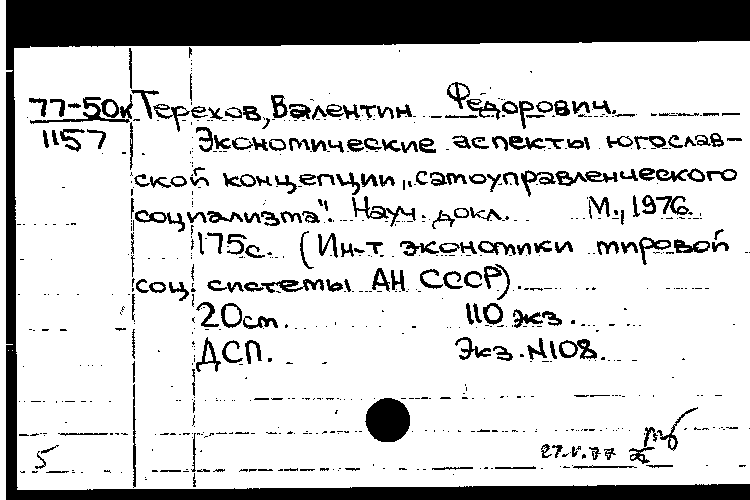 77-50к Терехов, Валентин Федорович.
1157 Экономические аспекты югослав-
ской концепции „самоуправленческого
социализма". Науч. докл. М., 1976.
175с. (Ин-т экономики мировой
соц. системы АН СССР).
20см. 110 экз.
ДСП. Экз. N108.
5 27.V.77